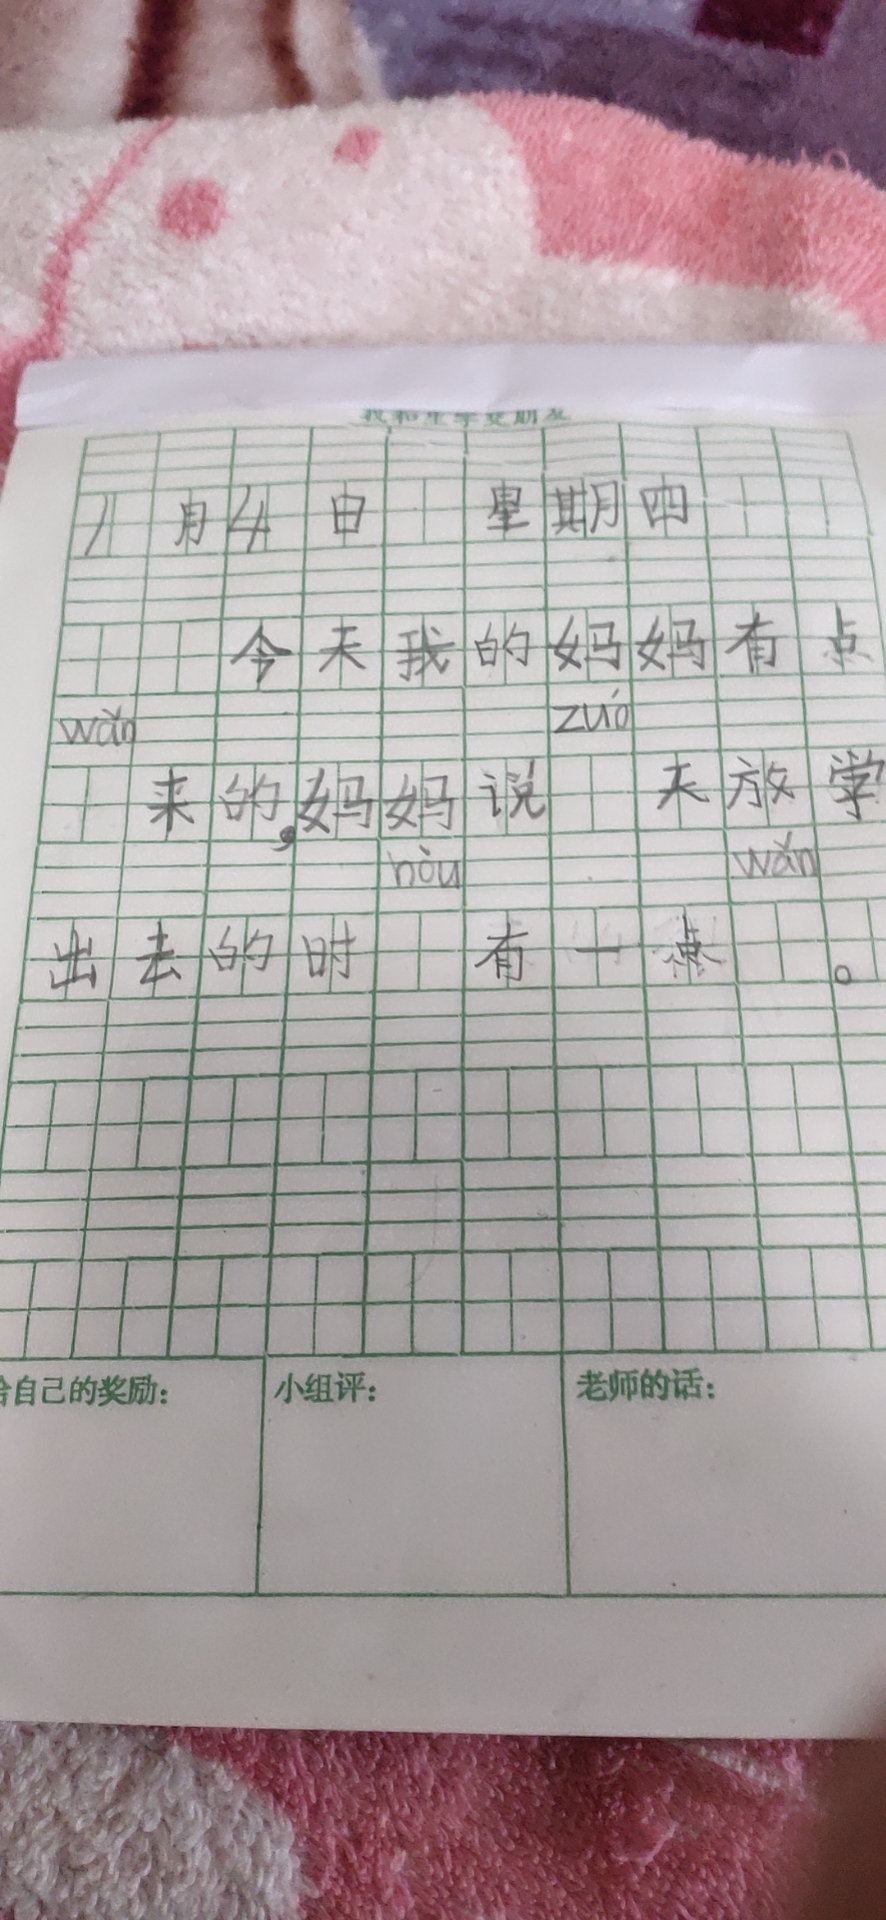 我和生字交朋友
11月4日 星期四
今天我的妈妈有点
wǎn zuó
来的,妈妈说 天放学
hòu wǎn
出去的时 有一点 。
给自己的奖励: 小组评: 老师的话: